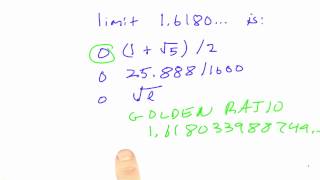 limit 1.6180... is:
0 (1 + √5) / 2
0 25.888/1600
0 √e
GOLDEN RATIO
1.618033988749...